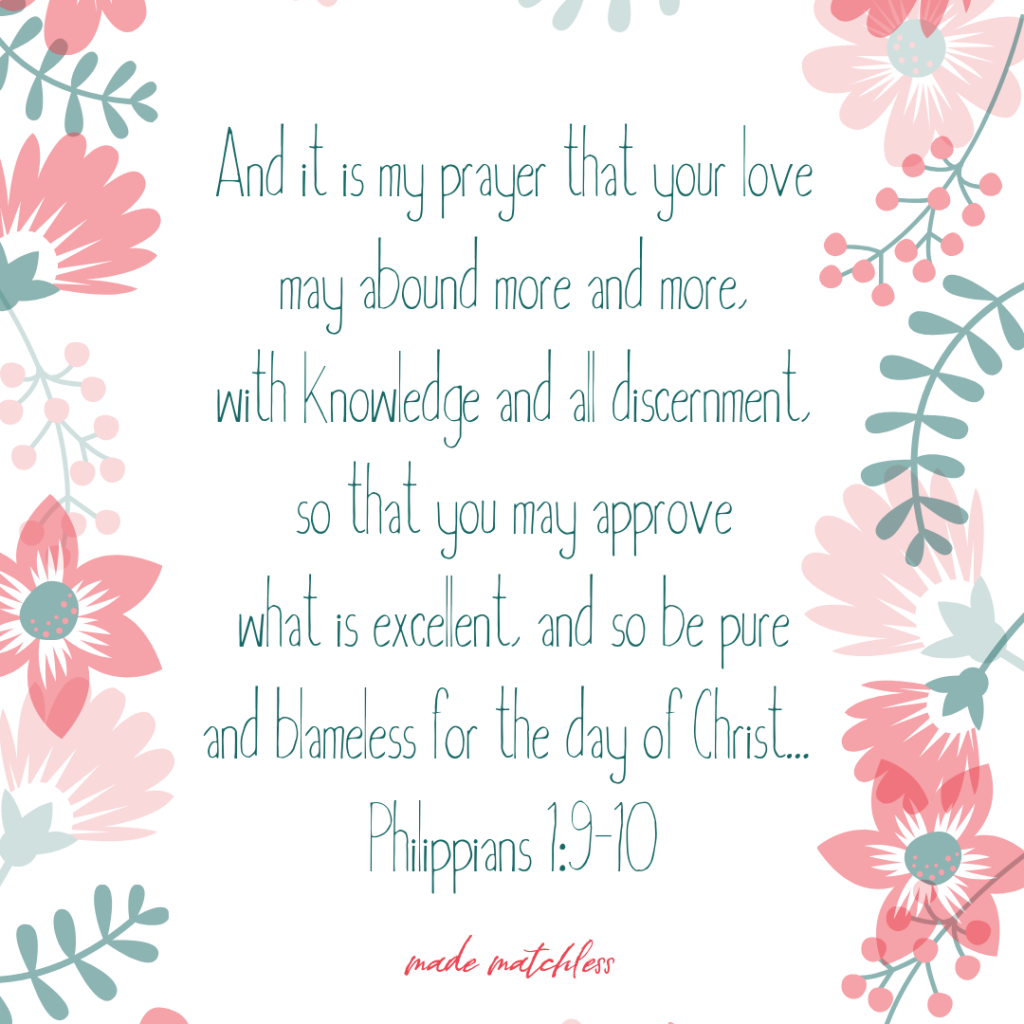 And it is my prayer that your love
may abound more and more,
with knowledge and all discernment,
so that you may approve
what is excellent, and so be pure
and blameless for the day of Christ...
Philippians 1:9-10
made matchless